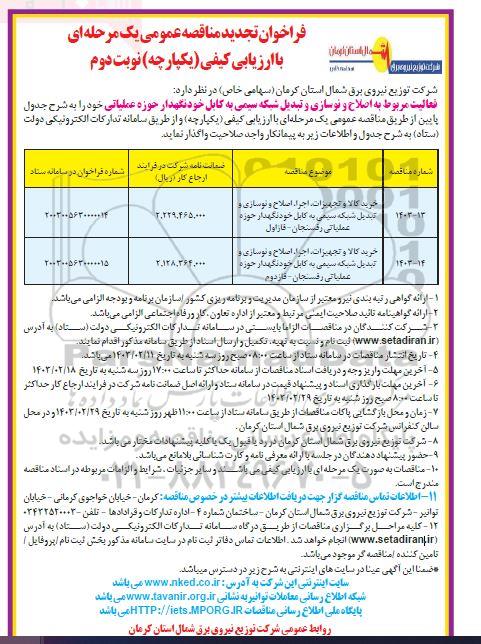 فراخوان تجدید مناقصه عمومی یک مرحله ای
با ارزیابی کیفی (یکپارچه) نوبت دوم
شرکت توزیع نیروی برق شمال استان کرمان
شرکت توزیع نیروی برق شمال استان کرمان (سهامی خاص) در نظر دارد:
فعالیت مربوط به اصلاح و نوسازی و تبدیل شبکه سیمی به کابل خودنگهدار حوزه عملیاتی خود را به شرح جدول
پایین از طریق مناقصه عمومی یک مرحله‌ای با ارزیابی کیفی (یکپارچه) و از طریق سامانه تدارکات الکترونیکی دولت
(ستاد) به شرح جدول و اطلاعات زیر به پیمانکار واجد صلاحیت واگذار نماید.
شماره مناقصه | موضوع مناقصه | ضمانت نامه شرکت در فرایند ارجاع کار (ریال) | شماره فراخوان در سامانه ستاد
۱۴۰۳-۱۳ | خرید کالا و تجهیزات، اجرا، اصلاح و نوسازی و تبدیل شبکه سیمی به کابل خودنگهدار حوزه عملیاتی رفسنجان - فازاول | ۲,۲۲۹,۴۶۵,۰۰۰ | ۲۰۰۳۰۰۵۶۳۰۰۰۰۰۱۴
۱۴۰۳-۱۴ | خرید کالا و تجهیزات، اجرا، اصلاح و نوسازی و تبدیل شبکه سیمی به کابل خودنگهدار حوزه عملیاتی رفسنجان - فازدوم | ۲,۱۲۸,۳۶۴,۰۰۰ | ۲۰۰۳۰۰۵۶۳۰۰۰۰۰۱۵
۱- ارائه گواهی رتبه بندی نیرو معتبر از سازمان مدیریت و برنامه ریزی کشور /سازمان برنامه و بودجه الزامی می‌باشد.
۲- ارائه گواهینامه تائید صلاحیت ایمنی مرتبط و معتبر از اداره تعاون، کار و رفاه اجتماعی الزامی می‌باشد.
۳- شرکت کنندگان در مناقصات الزاما بایستی در سامانه تدارکات الکترونیکی دولت (ستاد) به آدرس
(www.setadiran.ir) ثبت نام و نسبت به تهیه، تکمیل و ارسال اسناد از طریق سامانه مذکور اقدام نمایند.
۴- تاریخ انتشار مناقصات در سامانه ستاد از ساعت ۰۸:۰۰ صبح روز سه شنبه به تاریخ ۱۴۰۳/۰۲/۱۱ می‌باشد.
۵- آخرین مهلت واریز وجه و دریافت اسناد مناقصات از سامانه حداکثر تا ساعت ۱۷:۰۰ روز سه شنبه به تاریخ ۱۴۰۳/۰۲/۱۸
۶- آخرین مهلت بارگذاری اسناد و پیشنهاد قیمت در سامانه ستاد و ارائه اصل ضمانت نامه شرکت در فرایند ارجاع کار حداکثر
تا ساعت ۸:۰۰ صبح روز شنبه به تاریخ ۱۴۰۳/۰۲/۲۹
۷- زمان و محل بازگشایی پاکات مناقصات از طریق سامانه ستاد از ساعت ۱۱:۰۰ ظهر روز شنبه به تاریخ ۱۴۰۳/۰۲/۲۹ و در محل
سالن کنفرانس شرکت توزیع نیروی برق شمال استان کرمان.
۸- شرکت توزیع نیروی برق شمال استان کرمان در رد یا قبول یک یا کلیه پیشنهادات مختار می باشد.
۹- حضور پیشنهاد دهندگان در جلسه با ارائه معرفی نامه و کارت شناسائی بلامانع می‌باشد.
۱۰- مناقصات به صورت یک مرحله ای با ارزیابی کیفی می باشند و سایر جزئیات، شرایط و الزامات مربوطه در اسناد مناقصه
مندرج است.
۱۱- اطلاعات تماس مناقصه گزار جهت دریافت اطلاعات بیشتر در خصوص مناقصه: کرمان - خیابان خواجوی کرمانی - خیابان
توانیر - شرکت توزیع نیروی برق شمال استان کرمان - ساختمان شماره ۴ - اداره تدارکات و قراردادها - تلفن
۱۲- کلیه مراحل برگزاری مناقصات از طریق درگاه سامانه تدارکات الکترونیکی دولت (ستاد) به آدرس
(www.setadiran.ir) انجام خواهد شد. اطلاعات تماس دفاتر ثبت نام در سایت سامانه مذکور بخش ثبت نام/پروفایل /
تامین کننده /مناقصه گر موجود می‌باشد.
*ضمنا این آگهی عینا در سایت های اینترنتی به شرح زیر در دسترس میباشد
سایت اینترنتی این شرکت به آدرس: www.nked.co.ir می باشد
شبکه اطلاع رسانی معاملات توانیر به نشانی www.tavanir.org.ir می باشد
پایگاه ملی اطلاع رسانی مناقصات HTTP://iets.MPORG.IR می‌باشد
روابط عمومی شرکت توزیع نیروی برق شمال استان کرمان